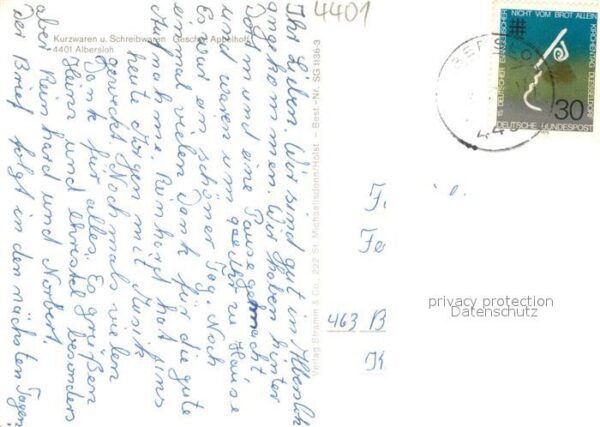 4401
Kurzwaren u. Schreibwaren Geschw. Appelhoff
4401 Albersloh
Ihr Lieben. Wir sind gut in Albersloh
angekommen. Wir haben hinter
Dortmund eine Pause gemacht
und waren um zu Hause
Es war ein schöner Tag. Noch
einmal vielen Dank für die gute
Aufnahme. Reinhard hat uns
heute Morgen mit Musik
geweckt. Nochmals vielen
Dank für alles. Es grüßen
Heinz und Christel besonders
aber Reinhard und Norbert.
Der Brief folgt in den nächsten Tagen.
Verlag Stramm & Co., 222 St. Michaelisdonn/Holst. - Best.-Nr. SG 1136-3
16. DEUTSCHER EVANGELISCHER
NICHT VOM BROT ALLEIN
KIRCHENTAG DÜSSELDORF
30
DEUTSCHE BUNDESPOST
463 B
privacy protection
Datenschutz